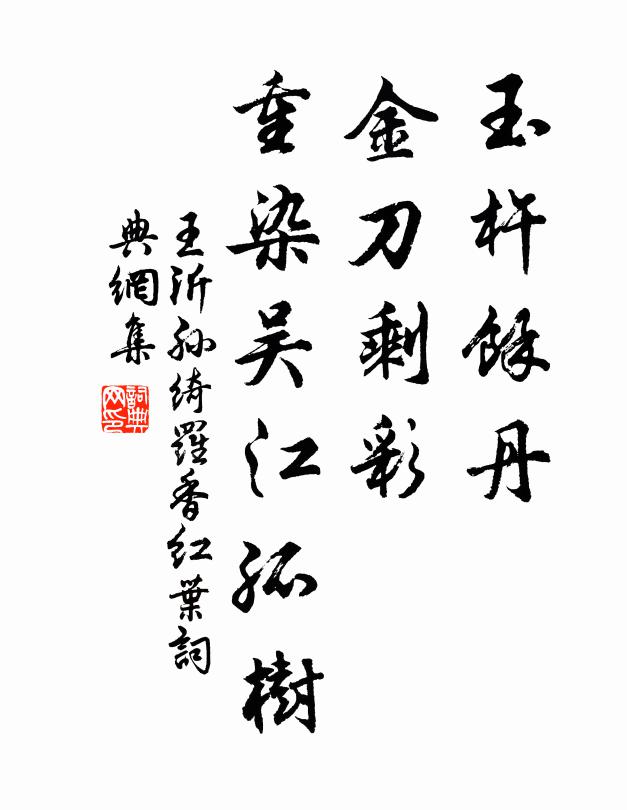 玉杵餘丹
金刀剩彩
重染吳江孤樹
王沂孫綺羅香紅葉詞
典網集
詞典網印